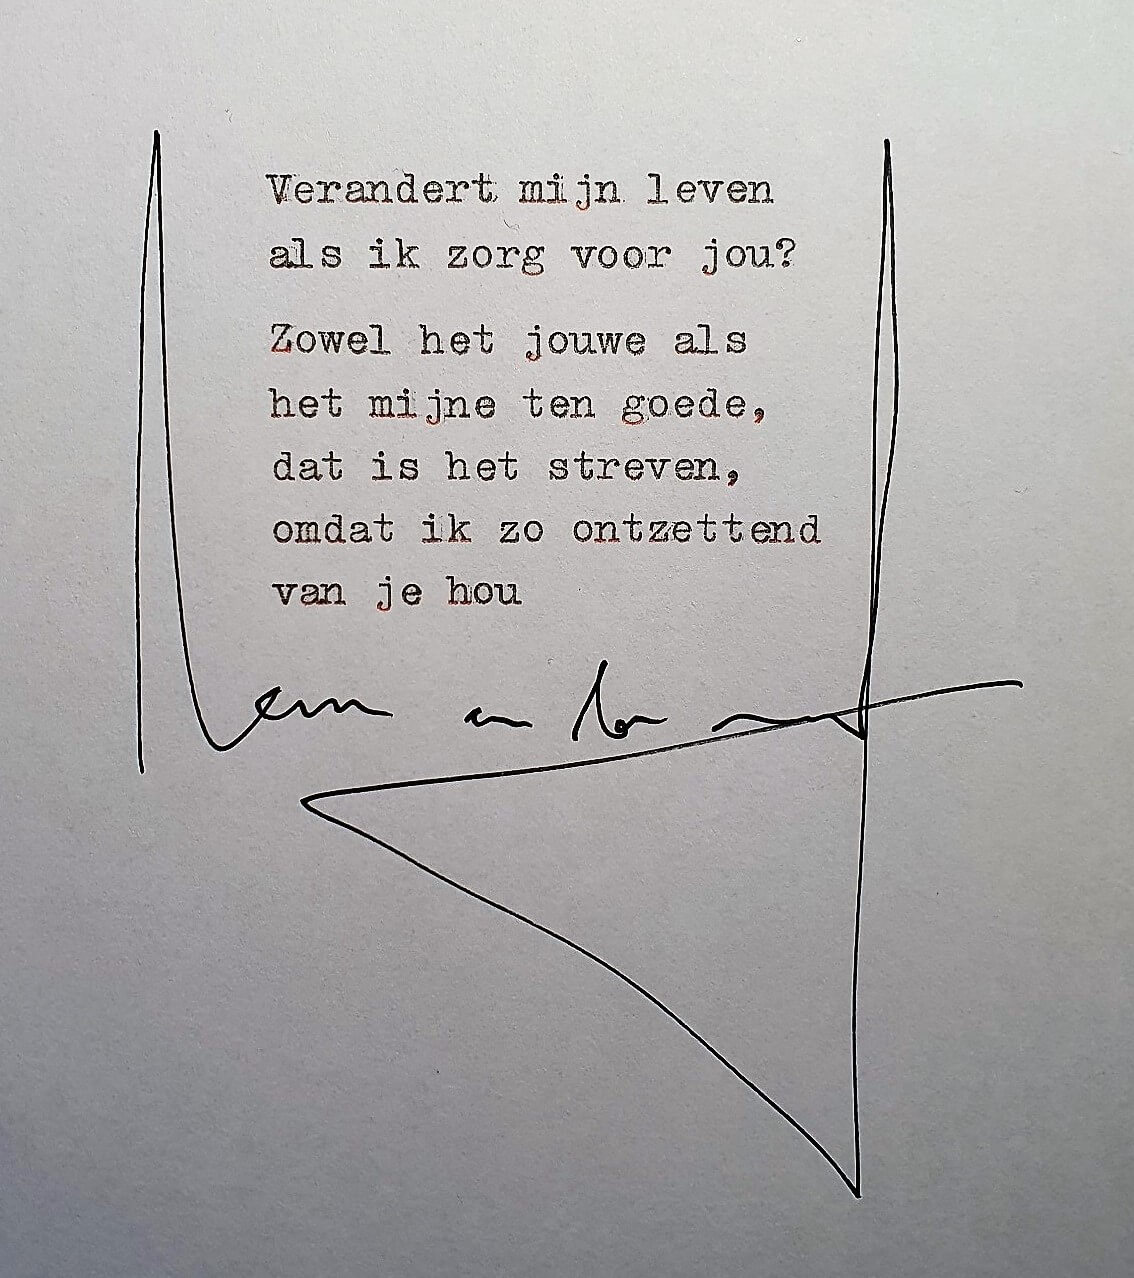 Verandert mijn leven
als ik zorg voor jou?
Zowel het jouwe als
het mijne ten goede,
dat is het streven,
omdat ik zo ontzettend
van je hou